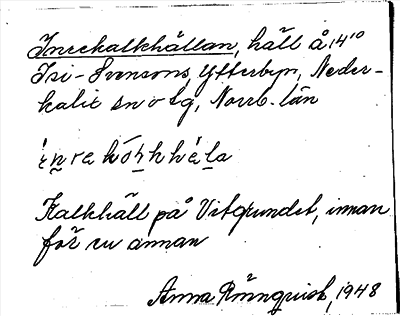 Inrekalkhällan, häll å 14¹⁰
Isi-Svensons, Ytterbyn, Neder-
kalix sn o tg, Norrb. län
Kalkhäll på Vitgrundet, innan
för en annan
Anna Rönnquist, 1948